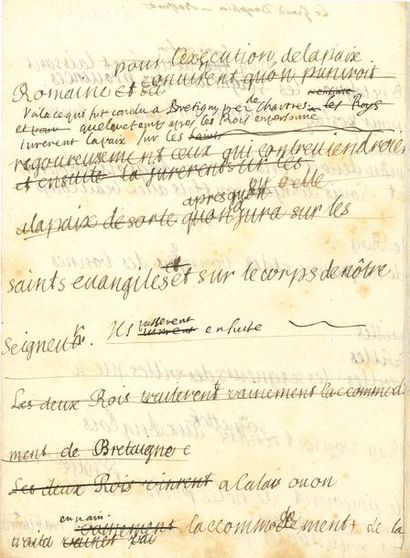 Le Grand Dauphin
pour l'execution de la paix
Romaine et
convinrent qu'on puniroit
Voila ce qui fut conclu a Bretigny prez de Chartres les Roys
et quelque tems apres les Rois en personne
jurerent la paix sur les saints
rigoureusement ceux qui contreviendroient
et ensuite la jurerent sur les
apres qu'
a la paix de sorte qu'on jura sur les
saints evangiles et sur le corps de nôtre
Seigneur. Ils ensuite
Les deux Rois traiterent vainement l'accomode
ment de Bretaigne
Les deux Rois vinrent a Calais ou on
en vain
traita vainement l'accommodement de la